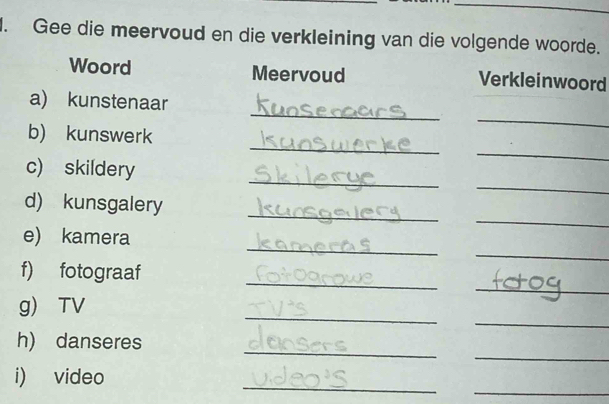 1. Gee die meervoud en die verkleining van die volgende woorde.
Woord Meervoud Verkleinwoord
a) kunstenaar kunsenaars
b) kunswerk kunswerke
c) skildery Skilerye
d) kunsgalery kunsgalery
e) kamera kameras
f) fotograaf fotograwe fotog
g) TV TV's
h) danseres dansers
i) video video's